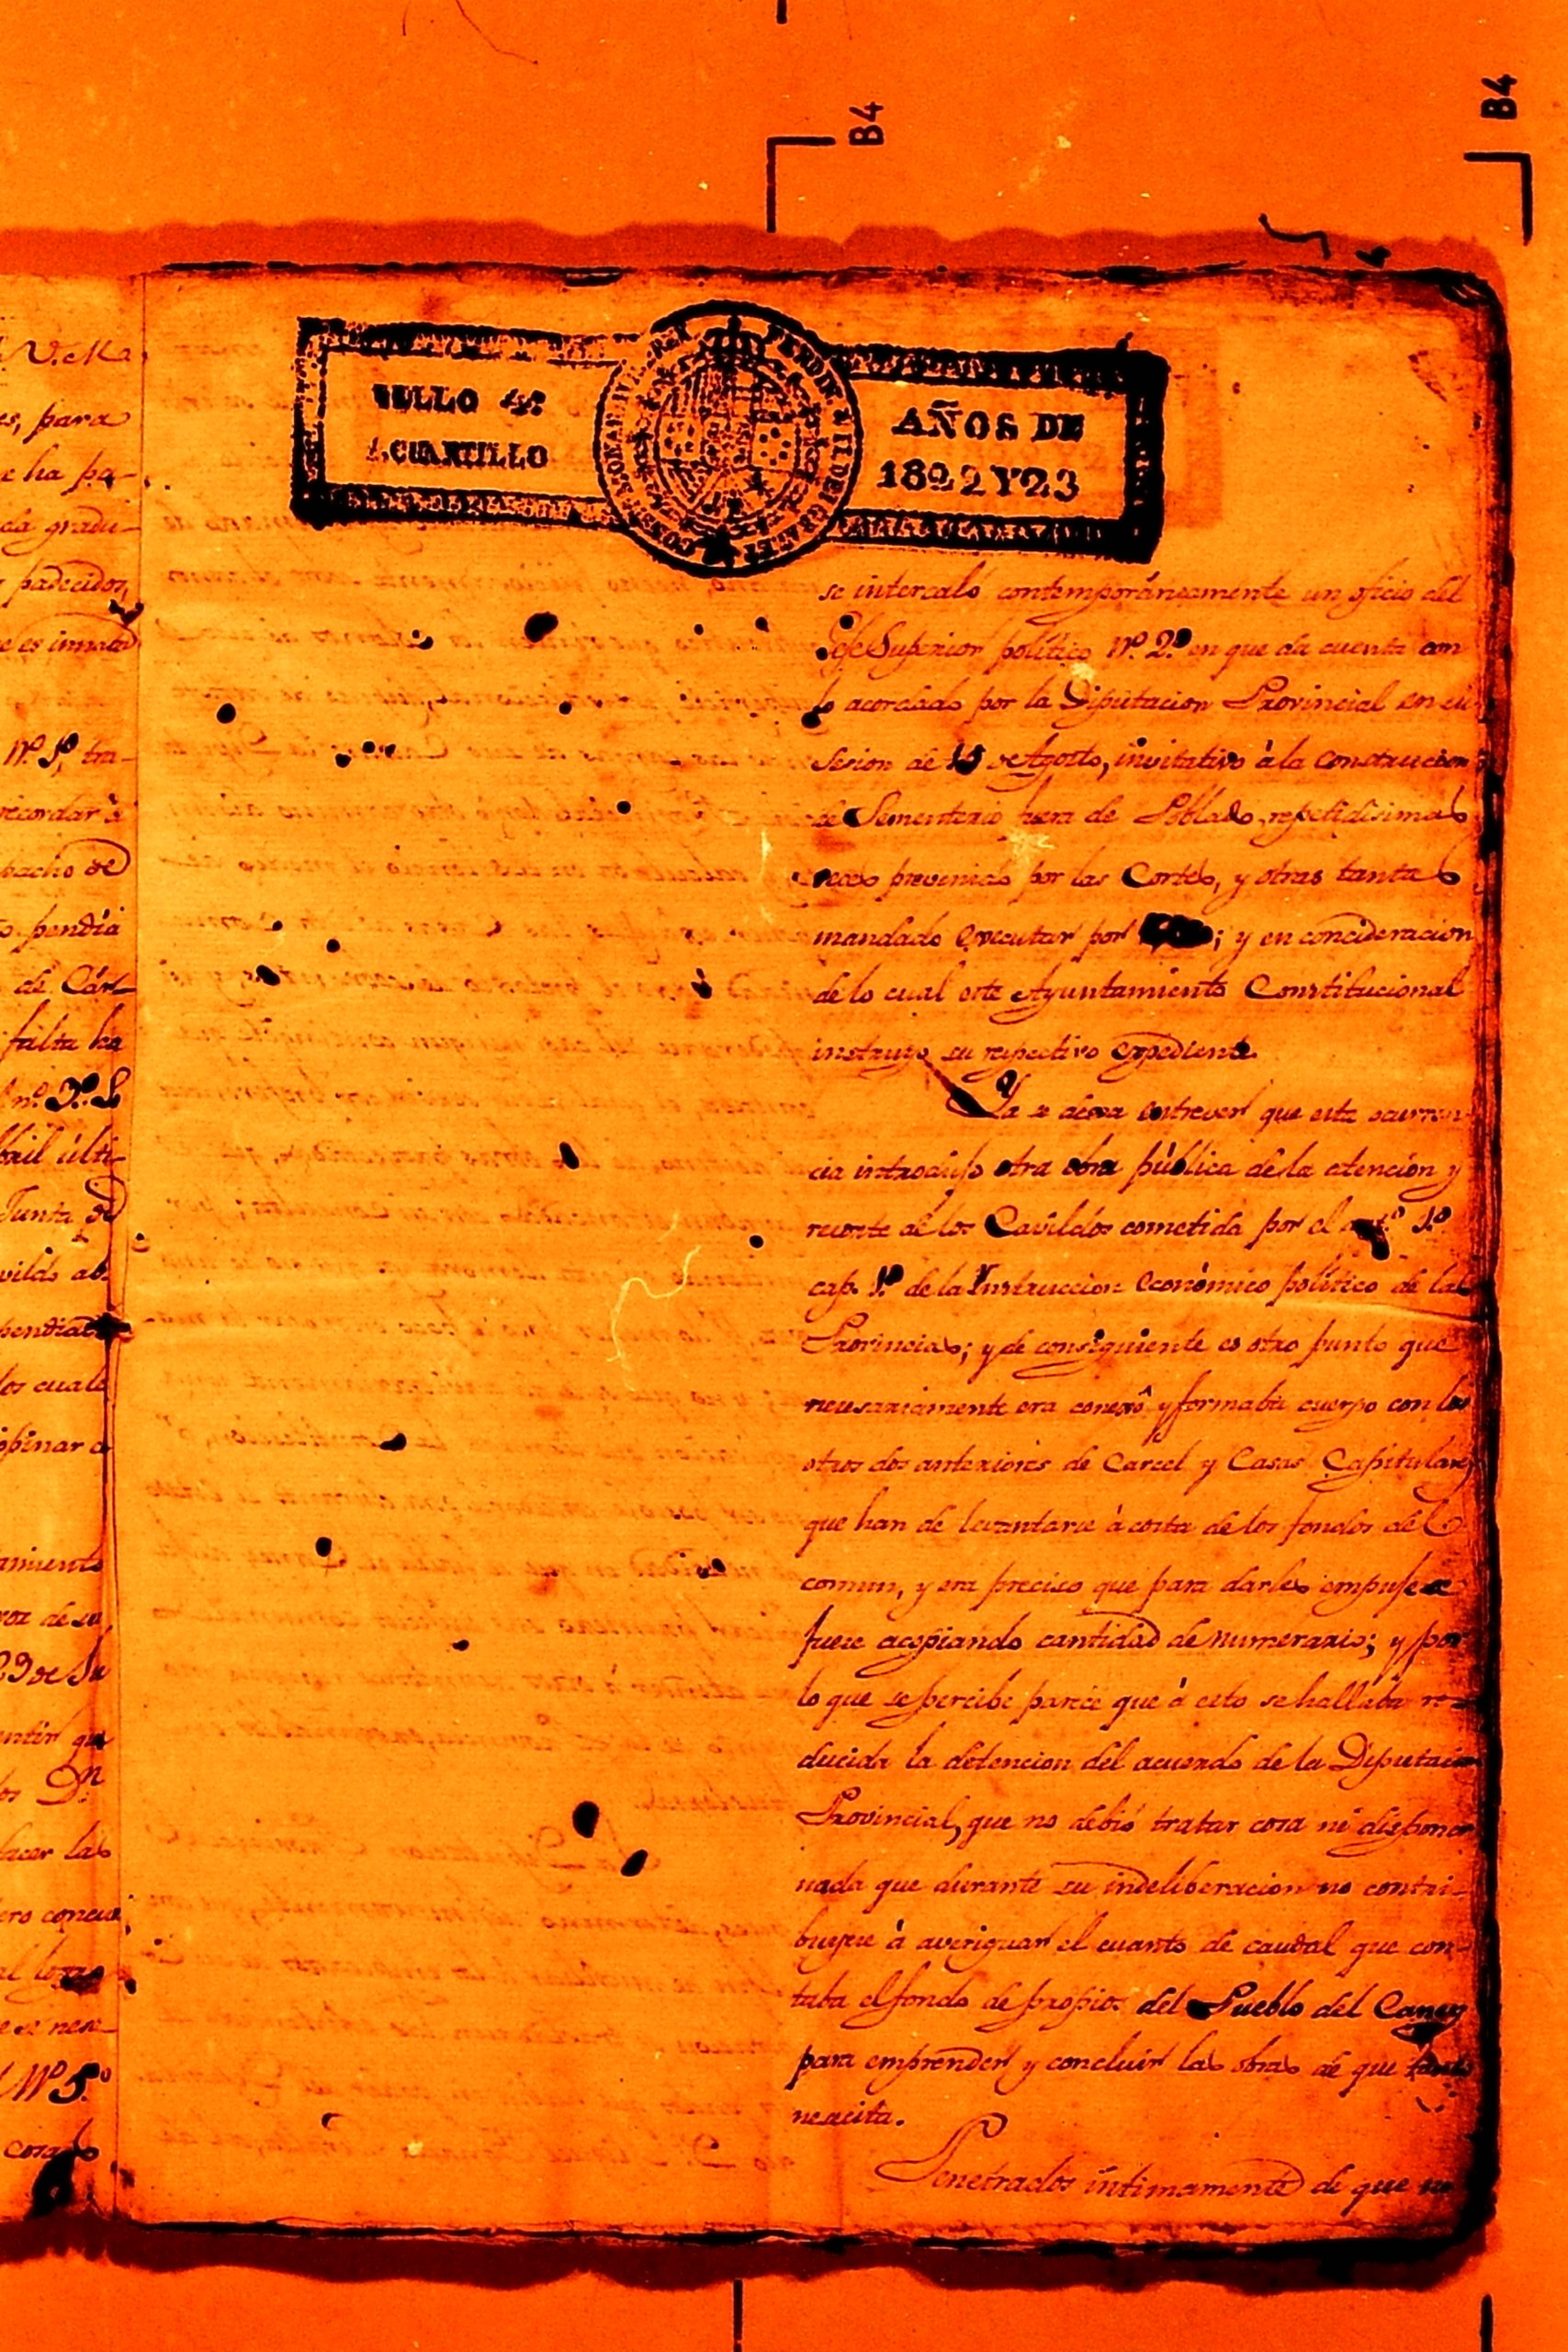 B4
B4
SELLO 4º
1. CUARTILLO
AÑOS DE
1822 Y 23
V. M.
es, para
e ha pa-
da gradu-
padecidos,
e es inmata
Nº. 1º, tra-
recordar à
pacho de
pendia
de Cár-
falta ha
nº. 3º. S
bril últi-
Junta de
vildo ab
pendiat
los cuale
opinar
amiento
voz de su
29 de Ju
entir que
os Dn.
hacer las
ero concur
al logro
e se nese-
Nº 5º
cosas
se intercaló contemporáneamente un oficio del
Gefe Superior político Nº. 2º en que da cuenta con
lo acordado por la Diputacion Provincial en su
sesion de 15 de Agosto, invitativo à la construccion
de Sementerio fuera de Poblado, repetidisimas
veces prevenido por las Cortes, y otras tantas
mandado executar por ; y en concideracion
de lo cual este Ayuntamiento Constitucional
instruyo su respectivo expediente.
Ya se dexa entrever que esta ocurren-
cia introdujo otra obra pública de la atencion y
resorte de los Cavildos cometida por el art.º 1º
cap. 1º de la Instruccion económico político de las
Provincias; y de consiguiente es otro punto que
necesariamente era conexô y formaba cuerpo con los
otros dos anteriores de Carcel y Casas Capitulares
que han de levantarse à costa de los fondos del
comun, y era preciso que para darles empuje se
fuese acopiando cantidad de numerario; y por
lo que se percibe parece que à esto se hallaba re-
ducida la detencion del acuerdo de la Diputacion
Provincial, que no debió tratar cosa ni disponer
nada que durante su indeliberacion no contri-
buyese à averiguar el cuanto de caudal que con-
taba el fondo de propios del Pueblo del Caney
para emprender y concluir las obras de que tanto
nesecita.
Penetrados íntimamente de que no